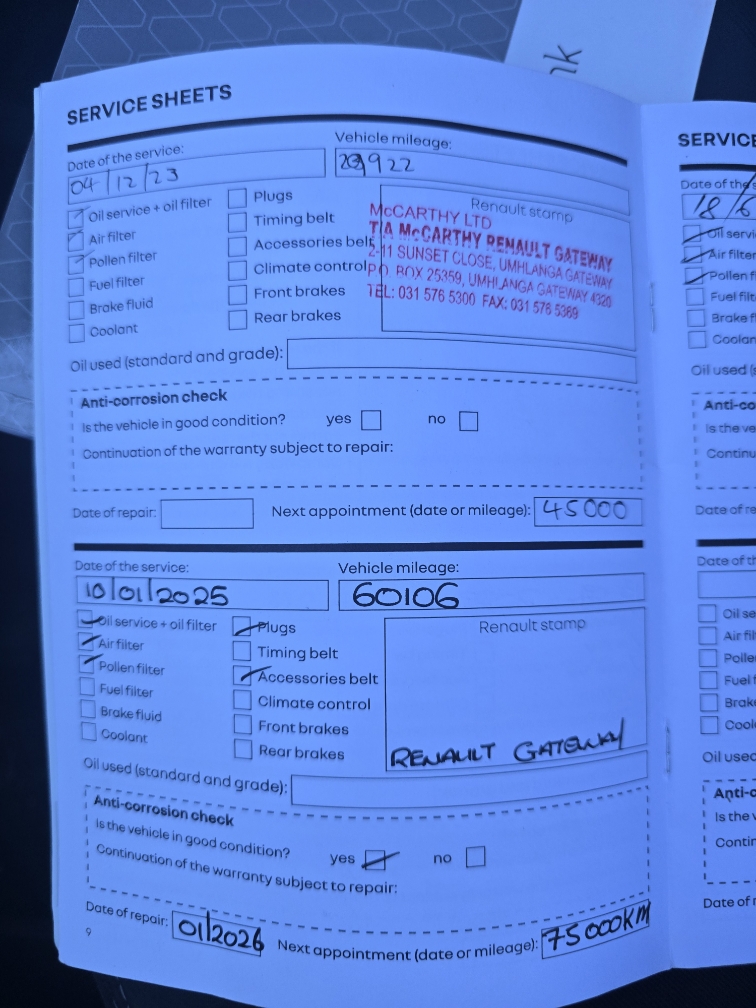 nk
SERVICE SHEETS
Date of the service:
04/12/23
Vehicle mileage:
Oil service + oil filter
Air filter
Pollen filter
Fuel filter
Brake fluid
Coolant
Plugs
Timing belt
Accessories belt
Climate control
Front brakes
Rear brakes
Renault stamp
McCARTHY LTD
T/A McCARTHY RENAULT GATEWAY
2-11 SUNSET CLOSE, UMHLANGA GATEWAY
P.O. BOX 25359, UMHLANGA GATEWAY 4320
TEL: 031 576 5300 FAX: 031 576 5369
Oil used (standard and grade):
Anti-corrosion check
Is the vehicle in good condition? yes no
Continuation of the warranty subject to repair:
Date of repair:
Next appointment (date or mileage): 45000
Date of the service:
10/01/2025
Vehicle mileage:
60106
Oil service + oil filter
Air filter
Pollen filter
Fuel filter
Brake fluid
Coolant
Plugs
Timing belt
Accessories belt
Climate control
Front brakes
Rear brakes
Renault stamp
RENAULT GATEWAY
Oil used (standard and grade):
Anti-corrosion check
Is the vehicle in good condition? yes no
Continuation of the warranty subject to repair:
Date of repair: 01/2026
Next appointment (date or mileage): 75000KM
9
SERVICE
Date of the s
18/6
Oil servi
Air filter
Pollen f
Fuel filt
Brake f
Coolan
Oil used (s
Anti-co
Is the ve
Continu
Date of re
Date of th
Oil se
Air fil
Polle
Fuel f
Brak
Cool
Oil used
Anti-c
Is the v
Contin
Date of r